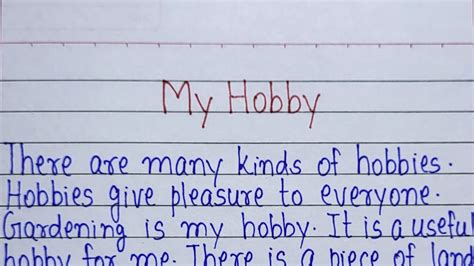 My Hobby
There are many kinds of hobbies.
Hobbies give pleasure to everyone.
Gardening is my hobby. It is a useful
hobby for me. There is a piece of land